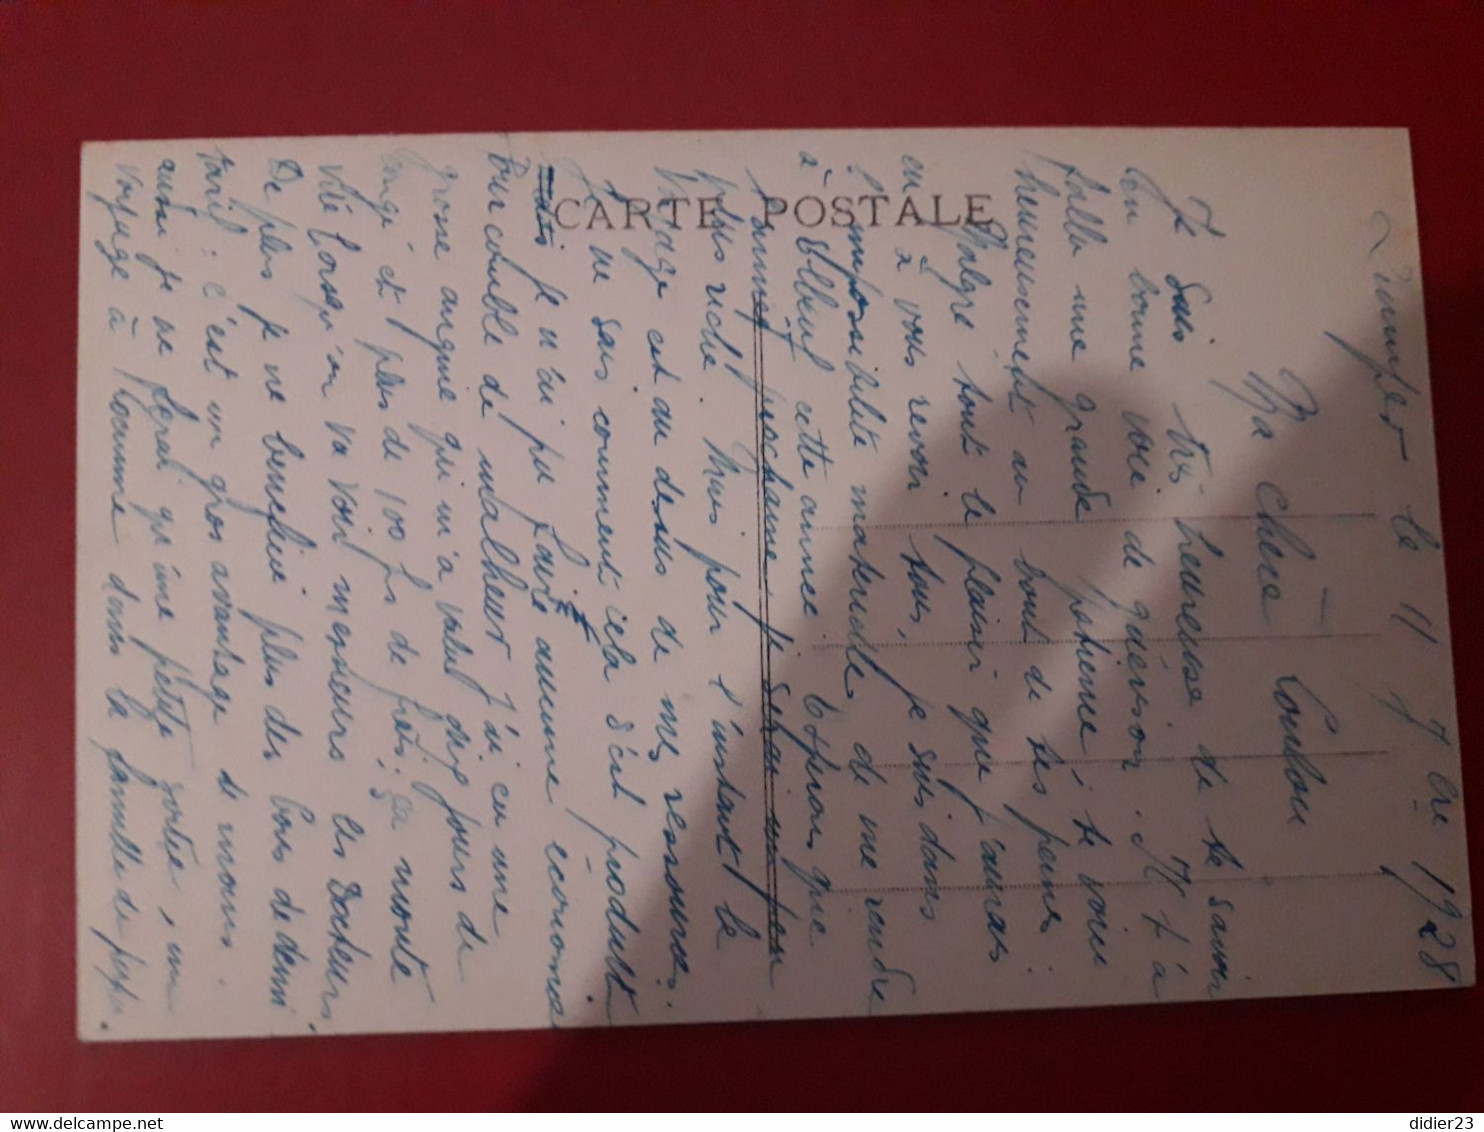 Quimper le 11 7bre 1928
Ma chère Loulou
Je suis très heureuse de te savoir
en bonne voie de guérison. Il t'a
fallu une grande patience ; te voici
heureusement au bout de tes peines.
Malgré tout le plaisir que j'aurais
eu à vous revoir tous, je suis dans
l'impossibilité matérielle de me rendre
à Elbeuf cette année. Espérons que
l'année prochaine je serai un peu
plus riche. Mais pour l'instant le
voyage est au dessus de mes ressources.
Je ne sais comment cela s'est produit
mais je n'ai pu faire aucune économie
Pour comble de malheur j'ai eu une
grosse angine qui m'a valu dix jours de
congé et plus de 100 frs de frais ; ça monte
vite lorsqu'on va voir messieurs les Docteurs.
De plus je ne bénéficie plus des bons de demi
tarif : c'est un gros avantage de moins.
aussi je ne ferai qu'une petite sortie, un
voyage à dans la famille de papa.
CARTE POSTALE
didier23
delcampe.net